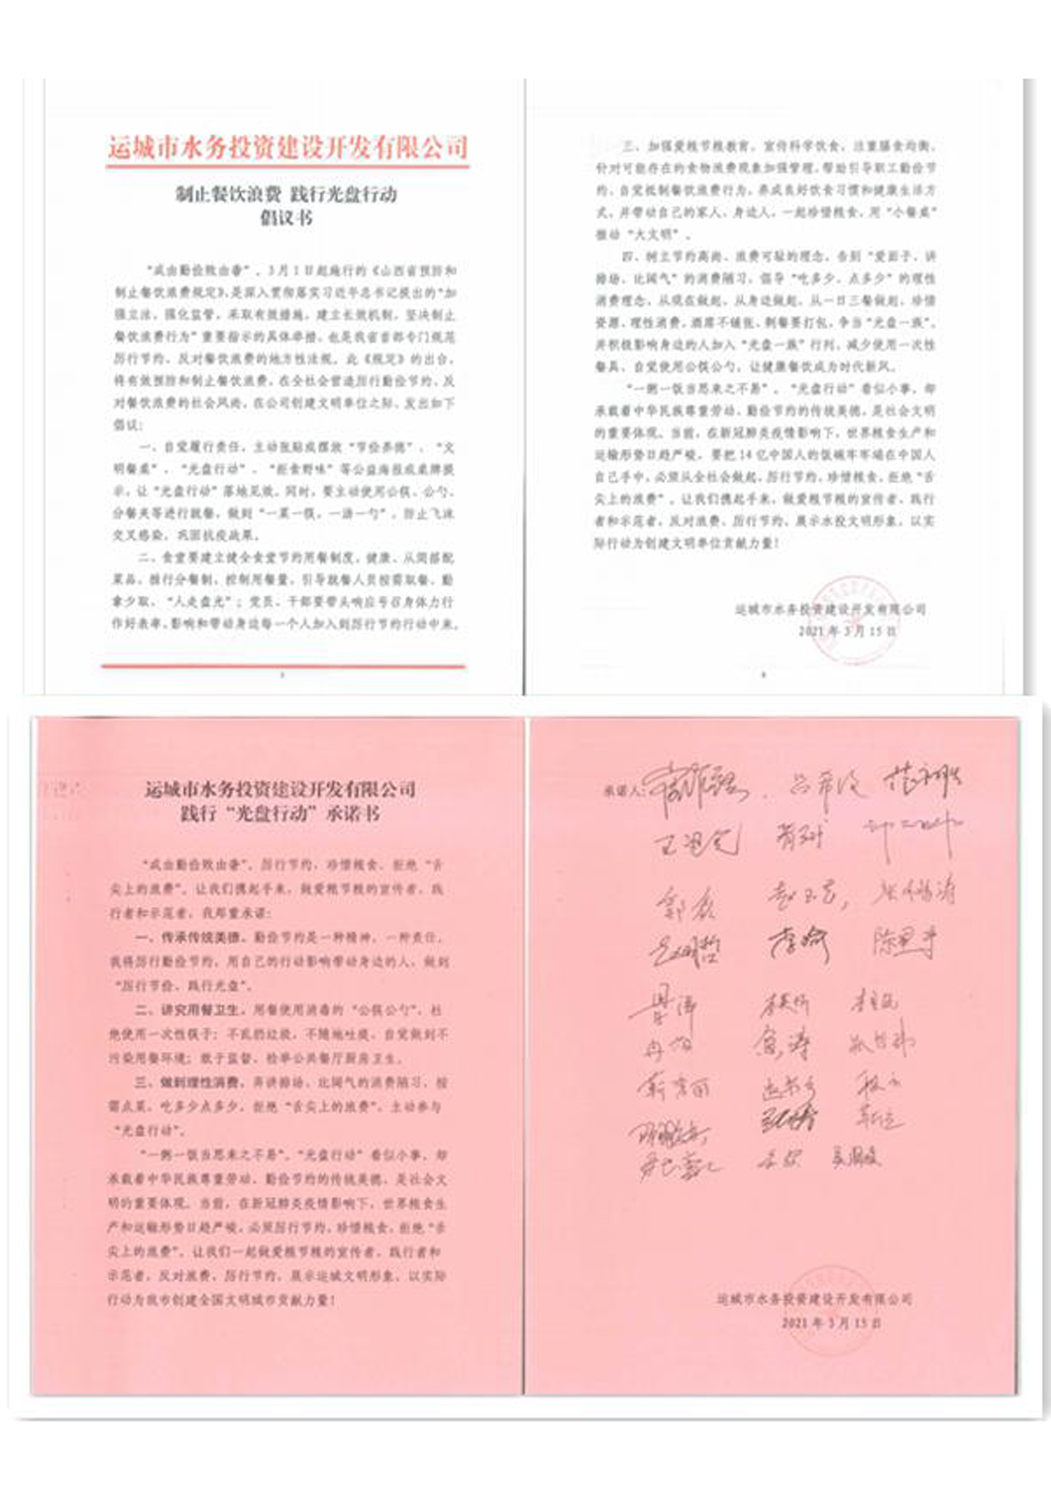 运城市水务投资建设开发有限公司
制止餐饮浪费 践行光盘行动
倡议书
“成由勤俭败由奢”，3月1日起施行的《山西省预防和
制止餐饮浪费规定》，是深入贯彻落实习近平总书记提出的“加
强立法，强化监管，采取有效措施，建立长效机制，坚决制止
餐饮浪费行为”重要指示的具体举措，也是我省首部专门规范
厉行节约、反对餐饮浪费的地方性法规。此《规定》的出台，
将有效预防和制止餐饮浪费，在全社会营造厉行勤俭节约、反
对餐饮浪费的社会风尚，在公司创建文明单位之际，发出如下
倡议：
一、自觉履行责任，主动张贴或摆放“节俭养德”、“文
明餐桌”、“光盘行动”、“拒食野味”等公益海报或桌牌提
示，让“光盘行动”落地见效。同时，要主动使用公筷、公勺、
分餐夹等进行就餐，做到“一菜一筷，一汤一勺”，防止飞沫
交叉感染，巩固抗疫战果。
二、食堂要建立健全食堂节约用餐制度，健康、从简搭配
菜品，推行分餐制，控制用餐量，引导就餐人员按需取餐、勤
拿少取、“人走盘光”；党员、干部要带头响应号召身体力行
作好表率，影响和带动身边每一个人加入到厉行节约行动中来。
三、加强爱粮节粮教育，宣传科学饮食，注重膳食均衡，
针对可能存在的食物浪费现象加强管理，帮助引导职工勤俭节
约，自觉抵制餐饮浪费行为，养成良好饮食习惯和健康生活方
式，并带动自己的家人、身边人，一起珍惜粮食，用“小餐桌”
推动“大文明”。
四、树立节约高尚、浪费可耻的理念，告别“爱面子、讲
排场、比阔气”的消费陋习，倡导“吃多少、点多少”的理性
消费理念，从现在做起，从身边做起，从一日三餐做起，珍惜
资源、理性消费，酒席不铺张、剩餐要打包，争当“光盘一族”，
并积极影响身边的人加入“光盘一族”行列，减少使用一次性
餐具、自觉使用公筷公勺，让健康餐饮成为时代新风。
“一粥一饭当思来之不易”，“光盘行动”看似小事，却
承载着中华民族尊重劳动、勤俭节约的传统美德，是社会文明
的重要体现。当前，在新冠肺炎疫情影响下，世界粮食生产和
运输形势日趋严峻，要把14亿中国人的饭碗牢牢端在中国人
自己手中，必须从全社会做起，厉行节约，珍惜粮食，拒绝“舌
尖上的浪费”。让我们携起手来，做爱粮节粮的宣传者、践行
者和示范者，反对浪费、厉行节约，展示水投文明形象，以实
际行动为创建文明单位贡献力量！
运城市水务投资建设开发有限公司
2021年3月15日
运城市水务投资建设开发有限公司
践行“光盘行动”承诺书
“成由勤俭败由奢”，厉行节约，珍惜粮食，拒绝“舌
尖上的浪费”，让我们携起手来，做爱粮节粮的宣传者、践
行者和示范者，我郑重承诺：
一、传承传统美德。勤俭节约是一种精神，一种责任，
我将厉行勤俭节约，用自己的行动影响带动身边的人，做到
“厉行节俭、践行光盘”。
二、讲究用餐卫生。用餐使用消毒的“公筷公勺”，杜
绝使用一次性筷子；不乱扔垃圾，不随地吐痰，自觉做到不
污染用餐环境；敢于监督、检举公共餐厅厨房卫生。
三、做到理性消费。弃讲排场、比阔气的消费陋习，按
需点菜，吃多少点多少，拒绝“舌尖上的浪费”，主动参与
“光盘行动”。
“一粥一饭当思来之不易”，“光盘行动”看似小事，却
承载着中华民族尊重劳动、勤俭节约的传统美德，是社会文
明的重要体现。当前，在新冠肺炎疫情影响下，世界粮食生
产和运输形势日趋严峻，必须厉行节约，珍惜粮食，拒绝“舌
尖上的浪费”，让我们一起做爱粮节粮的宣传者、践行者和
示范者，反对浪费、厉行节约，展示运城文明形象，以实际
行动为我市创建全国文明城市贡献力量！
承诺人：
运城市水务投资建设开发有限公司
2021年3月15日